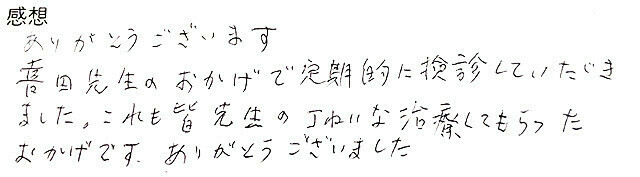 感想
ありがとうございます
喜田先生のおかげで定期的に検診していただき
ました。これも皆先生の丁ねいな治療してもらった
おかげです。ありがとうございました